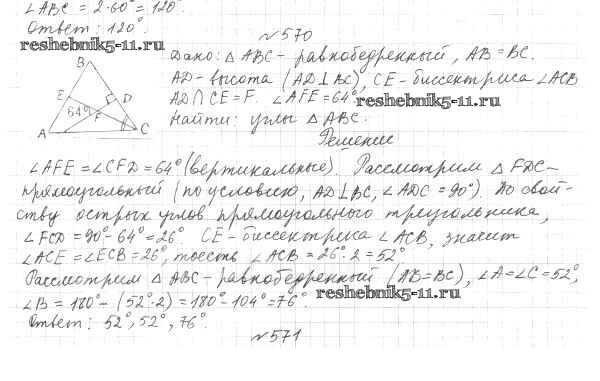 ∠ABC = 2·60° = 120°.
Ответ: 120°.
reshebnik5-11.ru
№570
Дано: △ABC - равнобедренный, AB=BC.
AD - высота (AD⊥BC), CE - биссектриса ∠ACB
AD∩CE=F. ∠AFE=64°
reshebnik5-11.ru
Найти: углы △ABC.
B
E
D
64°
F
A
C
Решение
∠AFE=∠CFD=64° (вертикальные). Рассмотрим △FDC-
прямоугольный (по условию, AD⊥BC, ∠ADC=90°). По свой-
ству острых углов прямоугольного треугольника,
∠FCD=90°-64°=26°. CE - биссектриса ∠ACB, значит
∠ACE=∠ECB=26°, тоесть ∠ACB=26°·2=52°.
Рассмотрим △ABC - равнобедренный (AB=BC), ∠A=∠C=52°,
∠B=180°-(52°·2)=180°-104°=76°.
reshebnik5-11.ru
Ответ: 52°, 52°, 76°.
№571